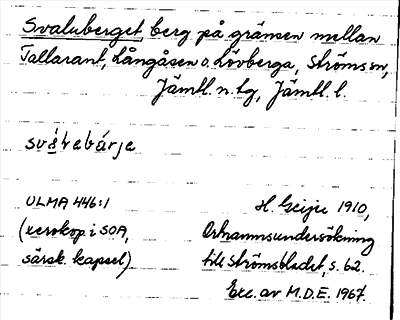 Svaluberget, berg på gränsen mellan
Tallarant, Långåsen o. Lövberga, Ströms sn,
Jämtl. n. tg, Jämtl. l.
svὲ̀lebárje
ULMA 446:1
(xerokop. i SOA,
särsk. kapsel)
H. Geijer 1910,
Ortnamnsundersökning
till Strömsbladet, s. 62.
Exc. av M.D.E. 1967.